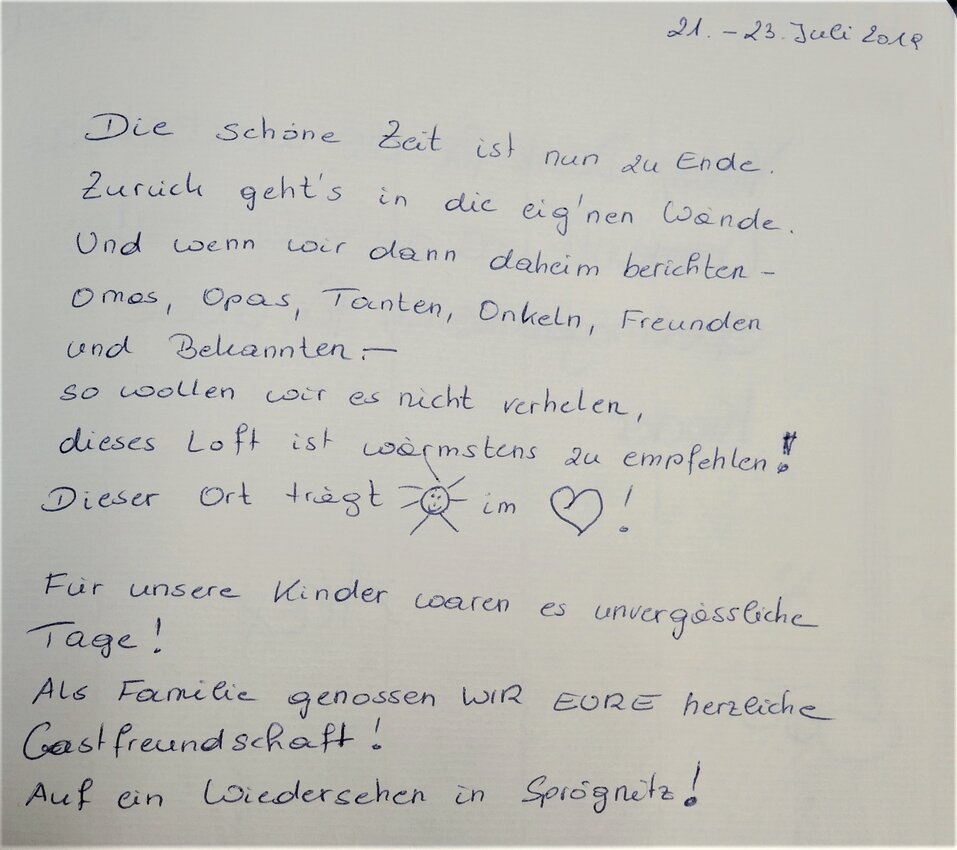 21. - 23. Juli 2019
Die schöne Zeit ist nun zu Ende.
Zurück geht's in die eig'nen Wände.
Und wenn wir dann daheim berichten -
Omas, Opas, Tanten, Onkeln, Freunden
und Bekannten -
so wollen wir es nicht verhelen,
dieses Loft ist wärmstens zu empfehlen!
Dieser Ort trägt im !
Für unsere Kinder waren es unvergässliche
Tage!
Als Familie genossen WIR EURE herzliche
Gastfreundschaft!
Auf ein Wiedersehen in Sprögnitz!